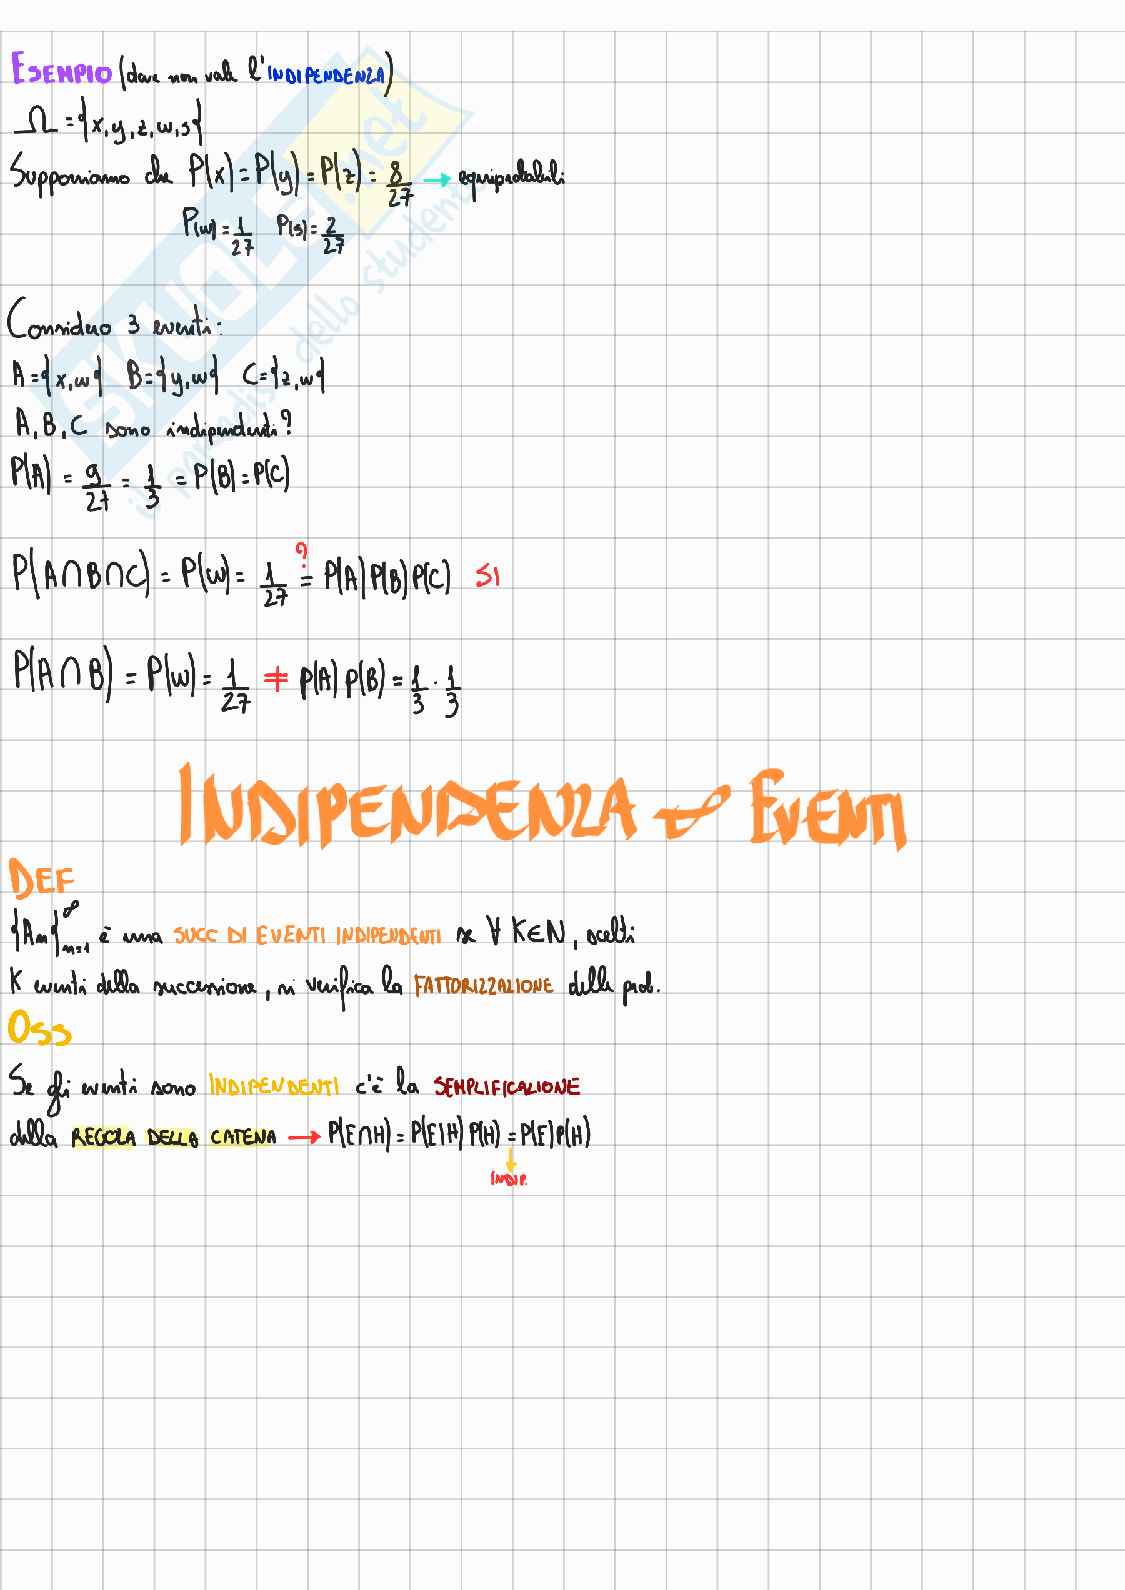 ESEMPIO (dove non vale l'INDIPENDENZA)
Ω = {x, y, z, w, s}
Supponiamo che P(x) = P(y) = P(z) = 8/27 → equiprobabili
P(w) = 1/27 P(s) = 2/27
Considero 3 eventi:
A = {x, w} B = {y, w} C = {z, w}
A, B, C sono indipendenti?
P(A) = 9/27 = 1/3 = P(B) = P(C)
P(A ∩ B ∩ C) = P(w) = 1/27 =? P(A) P(B) P(C) SI
P(A ∩ B) = P(w) = 1/27 ≠ P(A) P(B) = 1/3 · 1/3
INDIPENDENZA ∞ EVENTI
DEF
{An}∞n=1 è una SUCC DI EVENTI INDIPENDENTI se ∀ K∈N, scelti
K eventi della successione, si verifica la FATTORIZZAZIONE delle prob.
OSS
Se gli eventi sono INDIPENDENTI c'è la SEMPLIFICAZIONE
della REGOLA DELLA CATENA → P(E∩H) = P(E|H) P(H) = P(E) P(H)
INDIP.
SKUOLA.net
il paradiso dello studente